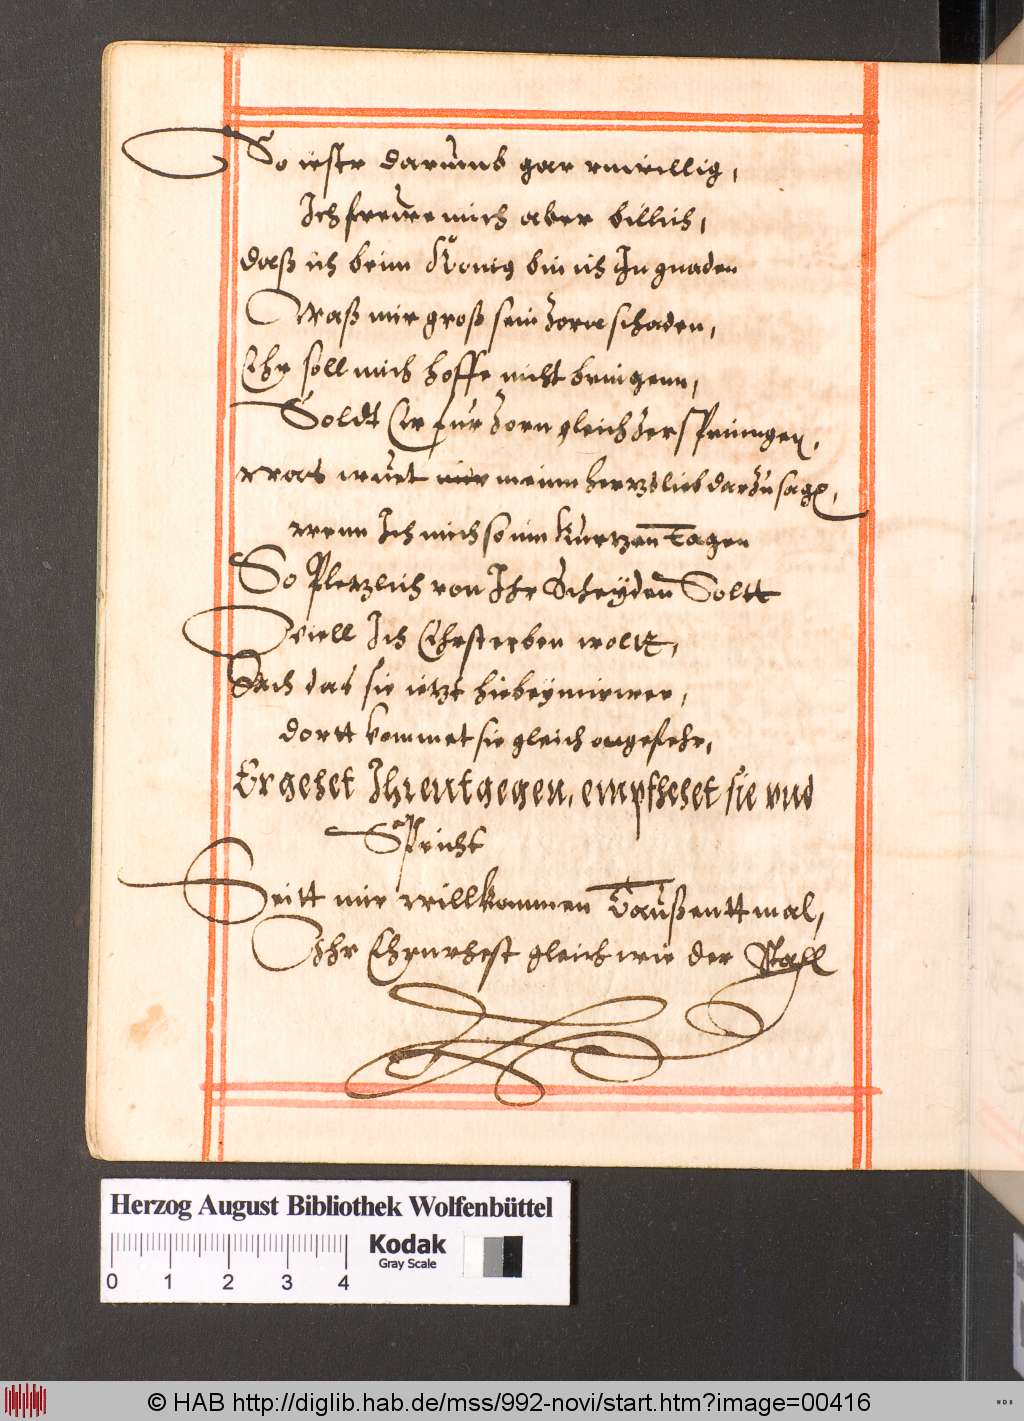 So ist er darumb gar vnwillig,
Ich frewe mich aber billich,
daß ich beim König bin ich In gnaden
Waß mir groß sein Zorn schaden,
Ehr soll mich hoffe nicht bringenn,
Soldt Er fur Zorn gleich Zerspringen,
was wurt mir meinn hertzlieb darzu sagen,
wenn Ich mich so inn kurtzen tagen
So Pletzlich von Ihr Scheyden Soltt
Viell Ich Ehr sterben woltt,
Ach das sie ietzt hie bey mir wer,
dortt kommet sie gleich ongefehr,
Er gehet Ihr entgegen, empfhehet sie vnd
Spricht
Seitt mir willkommen Taußentt mal,
Ihr Ehrnvhest gleich wie der Stahl
Herzog August Bibliothek Wolfenbüttel
0 1 2 3 4
Kodak
Gray Scale
© HAB http://diglib.hab.de/mss/992-novi/start.htm?image=00416